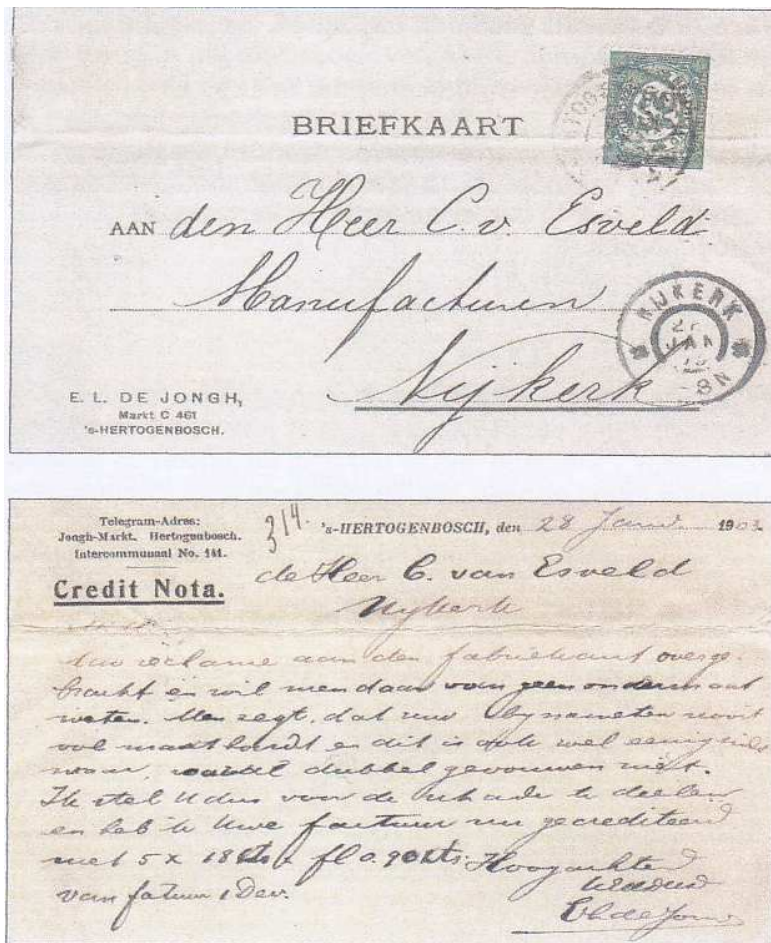 BRIEFKAART
AAN den Heer C. v. Esveld
Manufacturen
Nijkerk
NIJKERK
JAN
8N
E. L. DE JONGH,
Markt C 461
's-HERTOGENBOSCH.
Telegram-Adres:
Jongh-Markt. Hertogenbosch.
Intercommunaal No. 141.
Credit Nota.
314.
's-HERTOGENBOSCH, den 28 Januari 1903
de Heer C. van Esveld
Nijkerk
Uw reclame aan den fabrikant overge-
bracht en wil men daar van geen ondermaat
weten. Men zegt, dat uw nooit
vol maat houdt en dit is ook wel eenigzins
waar, dubbel gevouwen niet.
Ik stel U dus voor de schade te deelen
en heb ik Uwe factuur nu gecrediteerd
met 5 x 18 cts fl 0.90 cts. Hoogachtend
van fatuur 1 Dec.
EL de Jongh